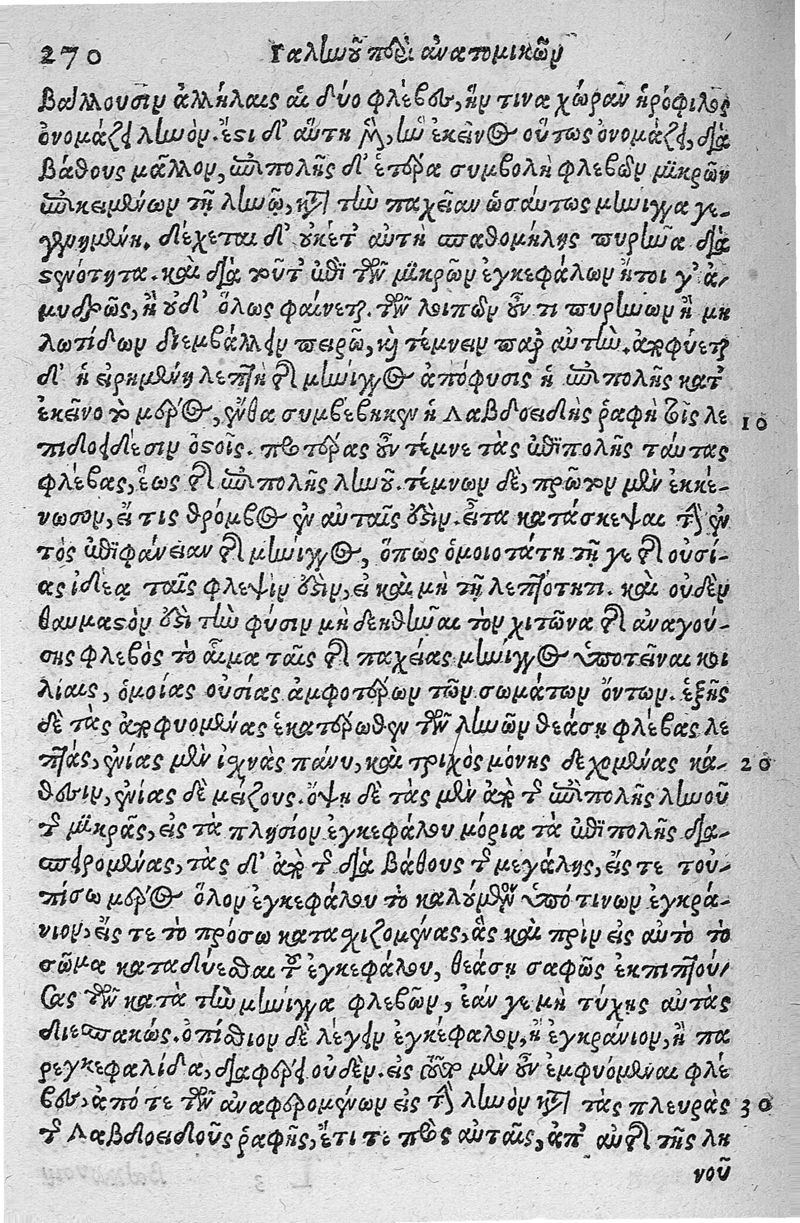 270 Γαληνοῦ περὶ ἀνατομικῶν
βάλλουσιν ἀλλήλαις αἱ δύο φλέβες, ἥν τινα χώραν ἡρόφιλος
ὀνομάζει ληνόν. ἔστι δ' αὕτη μὲν, ἣν ἐκεῖνος οὕτως ὀνομάζει, διὰ
βάθους μᾶλλον, ἐπιπολῆς δ' ἑτέρα συμβολὴ φλεβῶν μικρῶν
ἐπικειμένων τῇ ληνῷ, κατὰ τὴν παχεῖαν ὡσαύτως μήνιγγα γε-
γενημένη. δέχεται δ' οὐκέτ' αὐτὴ σπαθομήλης πυρῆνα διὰ
στενότητα. καὶ διὰ τοῦτ' ἐπὶ τῶν μικρῶν ἐγκεφάλων ἤτοι γ' ἀ-
μυδρῶς, ἢ οὐδ' ὅλως φαίνεται. τῶν λοιπῶν οὖν τι πυρήνων ἢ μη
λωτίδων διεμβάλλειν πειρῶ, καὶ τέμνειν παρ' αὐτήν. ἐκφύεται
δ' ἡ εἰρημένη λεπτὴ τῆς μήνιγγος ἀπόφυσις ἡ ἐπιπολῆς κατ'
ἐκεῖνο τὸ μέρος, ἔνθα συμβέβηκεν ἡ Λαβδοειδὴς ῥαφὴ τοῖς λε 10
πιδοειδέσιν ὀστοῖς. προτέρας οὖν τέμνε τὰς ἐπιπολῆς ταύτας
φλέβας, ἕως τῆς ἐπιπολῆς ληνοῦ. τέμνων δὲ, πρῶτον μὲν ἐκκέ-
νωσον, εἴ τις θρόμβος ἐν αὐταῖς ἐστιν. εἶτα κατάσκεψαι τὴν ἐν
τὸς ἐπιφάνειαν τῆς μήνιγγος, ὅπως ὁμοιοτάτη τῇ γε τῆς οὐσί-
ας ἰδέᾳ ταῖς φλεψίν ἐστιν, εἰ καὶ μὴ τῇ λεπτότητι. καὶ οὐδὲν
θαυμαστόν ἐστι τὴν φύσιν μὴ δεηθῆναι τὸν χιτῶνα τῆς ἀναγού-
σης φλεβὸς τὸ αἷμα ταῖς τῆς παχείας μήνιγγος ὑποτεῖναι κοι
λίαις, ὁμοίας οὐσίας ἀμφοτέρων τῶν σωμάτων ὄντων. ἑξῆς
δὲ τὰς ἐκφυομένας ἑκατέρωθεν τῶν ληνῶν θεάσῃ φλέβας λε
πτάς, ἐνίας μὲν ἰσχνὰς πάνυ, καὶ τριχὸς μόνης δεχομένας κά- 20
θεσιν, ἐνίας δὲ μείζους. ὄψῃ δὲ τὰς μὲν ἐκ τῆς ἐπιπολῆς ληνοῦ
τῆς μικρᾶς, εἰς τὰ πλησίον ἐγκεφάλου μόρια τὰ ἐπιπολῆς δια-
σπειρομένας, τὰς δ' ἐκ τῆς διὰ βάθους τῆς μεγάλης, εἴς τε τού-
πίσω μέρος ὅλον ἐγκεφάλου τὸ καλούμενον ὑπό τινων ἐγκρά-
νιον, εἴς τε τὸ πρόσω κατασχιζομένας, ἃς καὶ πρὶν εἰς αὐτὸ τὸ
σῶμα καταδύεσθαι τοῦ ἐγκεφάλου, θεάσῃ σαφῶς ἐκπιπτού-
σας τῶν κατὰ τὴν μήνιγγα φλεβῶν, ἐάν γε μὴ τύχῃς αὐτὰς
διεσπακώς. ὀπίσθιον δὲ λέγειν ἐγκέφαλον, ἢ ἐγκράνιον, ἢ πα
ρεγκεφαλίδα, διαφέρει οὐδέν. εἰς τοῦτον μὲν οὖν ἐμφυόμεναι φλέ
βες, ἀπό τε τῶν ἀναφερομένων εἰς τὴν ληνὸν κατὰ τὰς πλευρὰς 30
τῆς Λαβδοειδοῦς ῥαφῆς, ἔτι τε πρὸς αὐταῖς, ἀπ' αὐτῆς τῆς λη
νοῦ